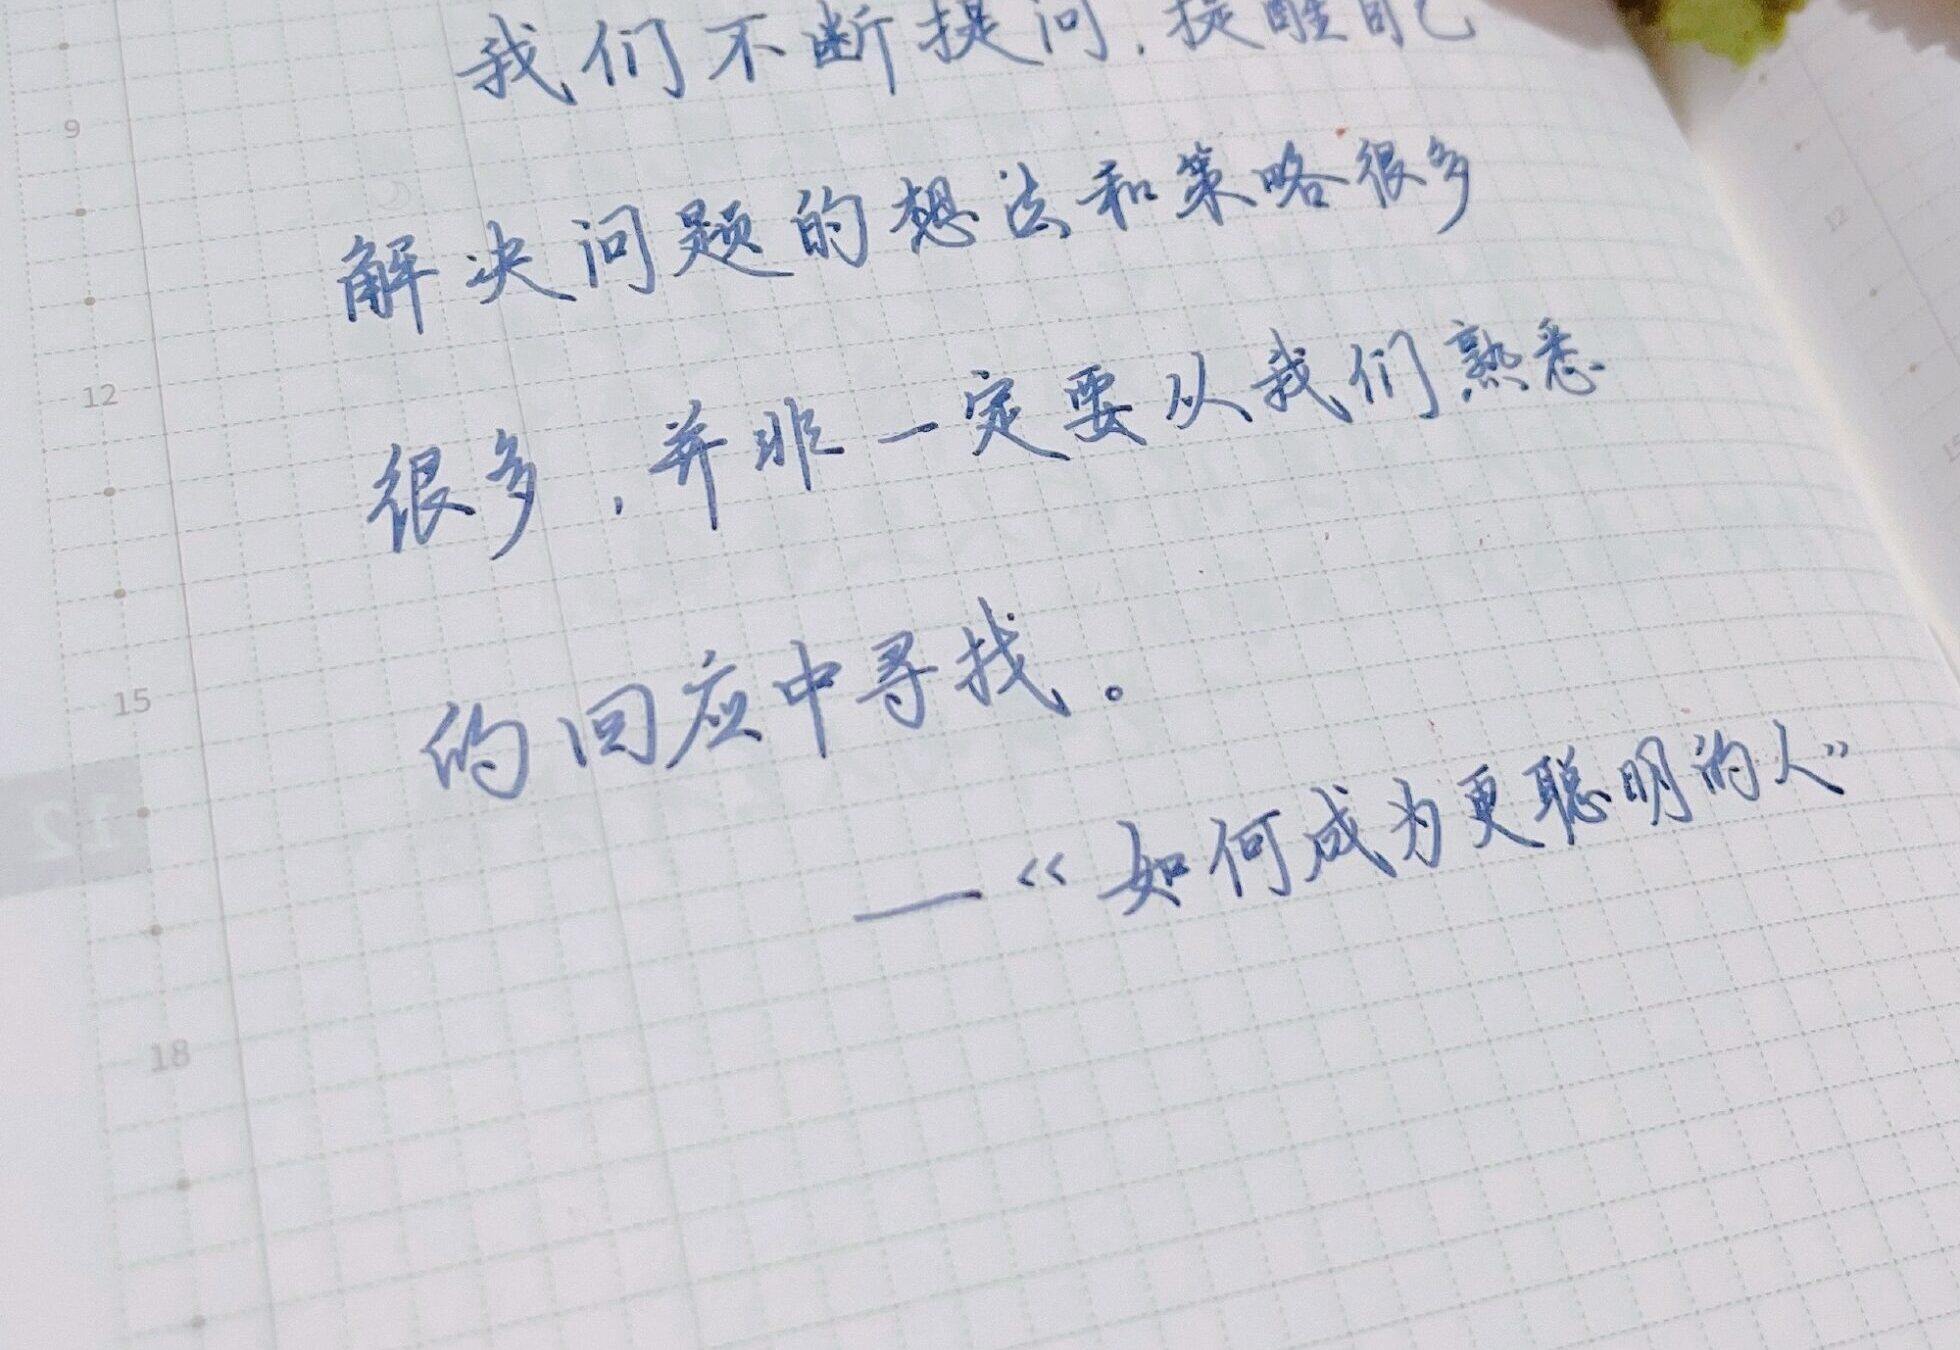 我们不断提问，提醒自己
9
解决问题的想法和策略很多
12
很多，并非一定要从我们熟悉
的回应中寻找。
15
—《如何成为更聪明的人》
12
18